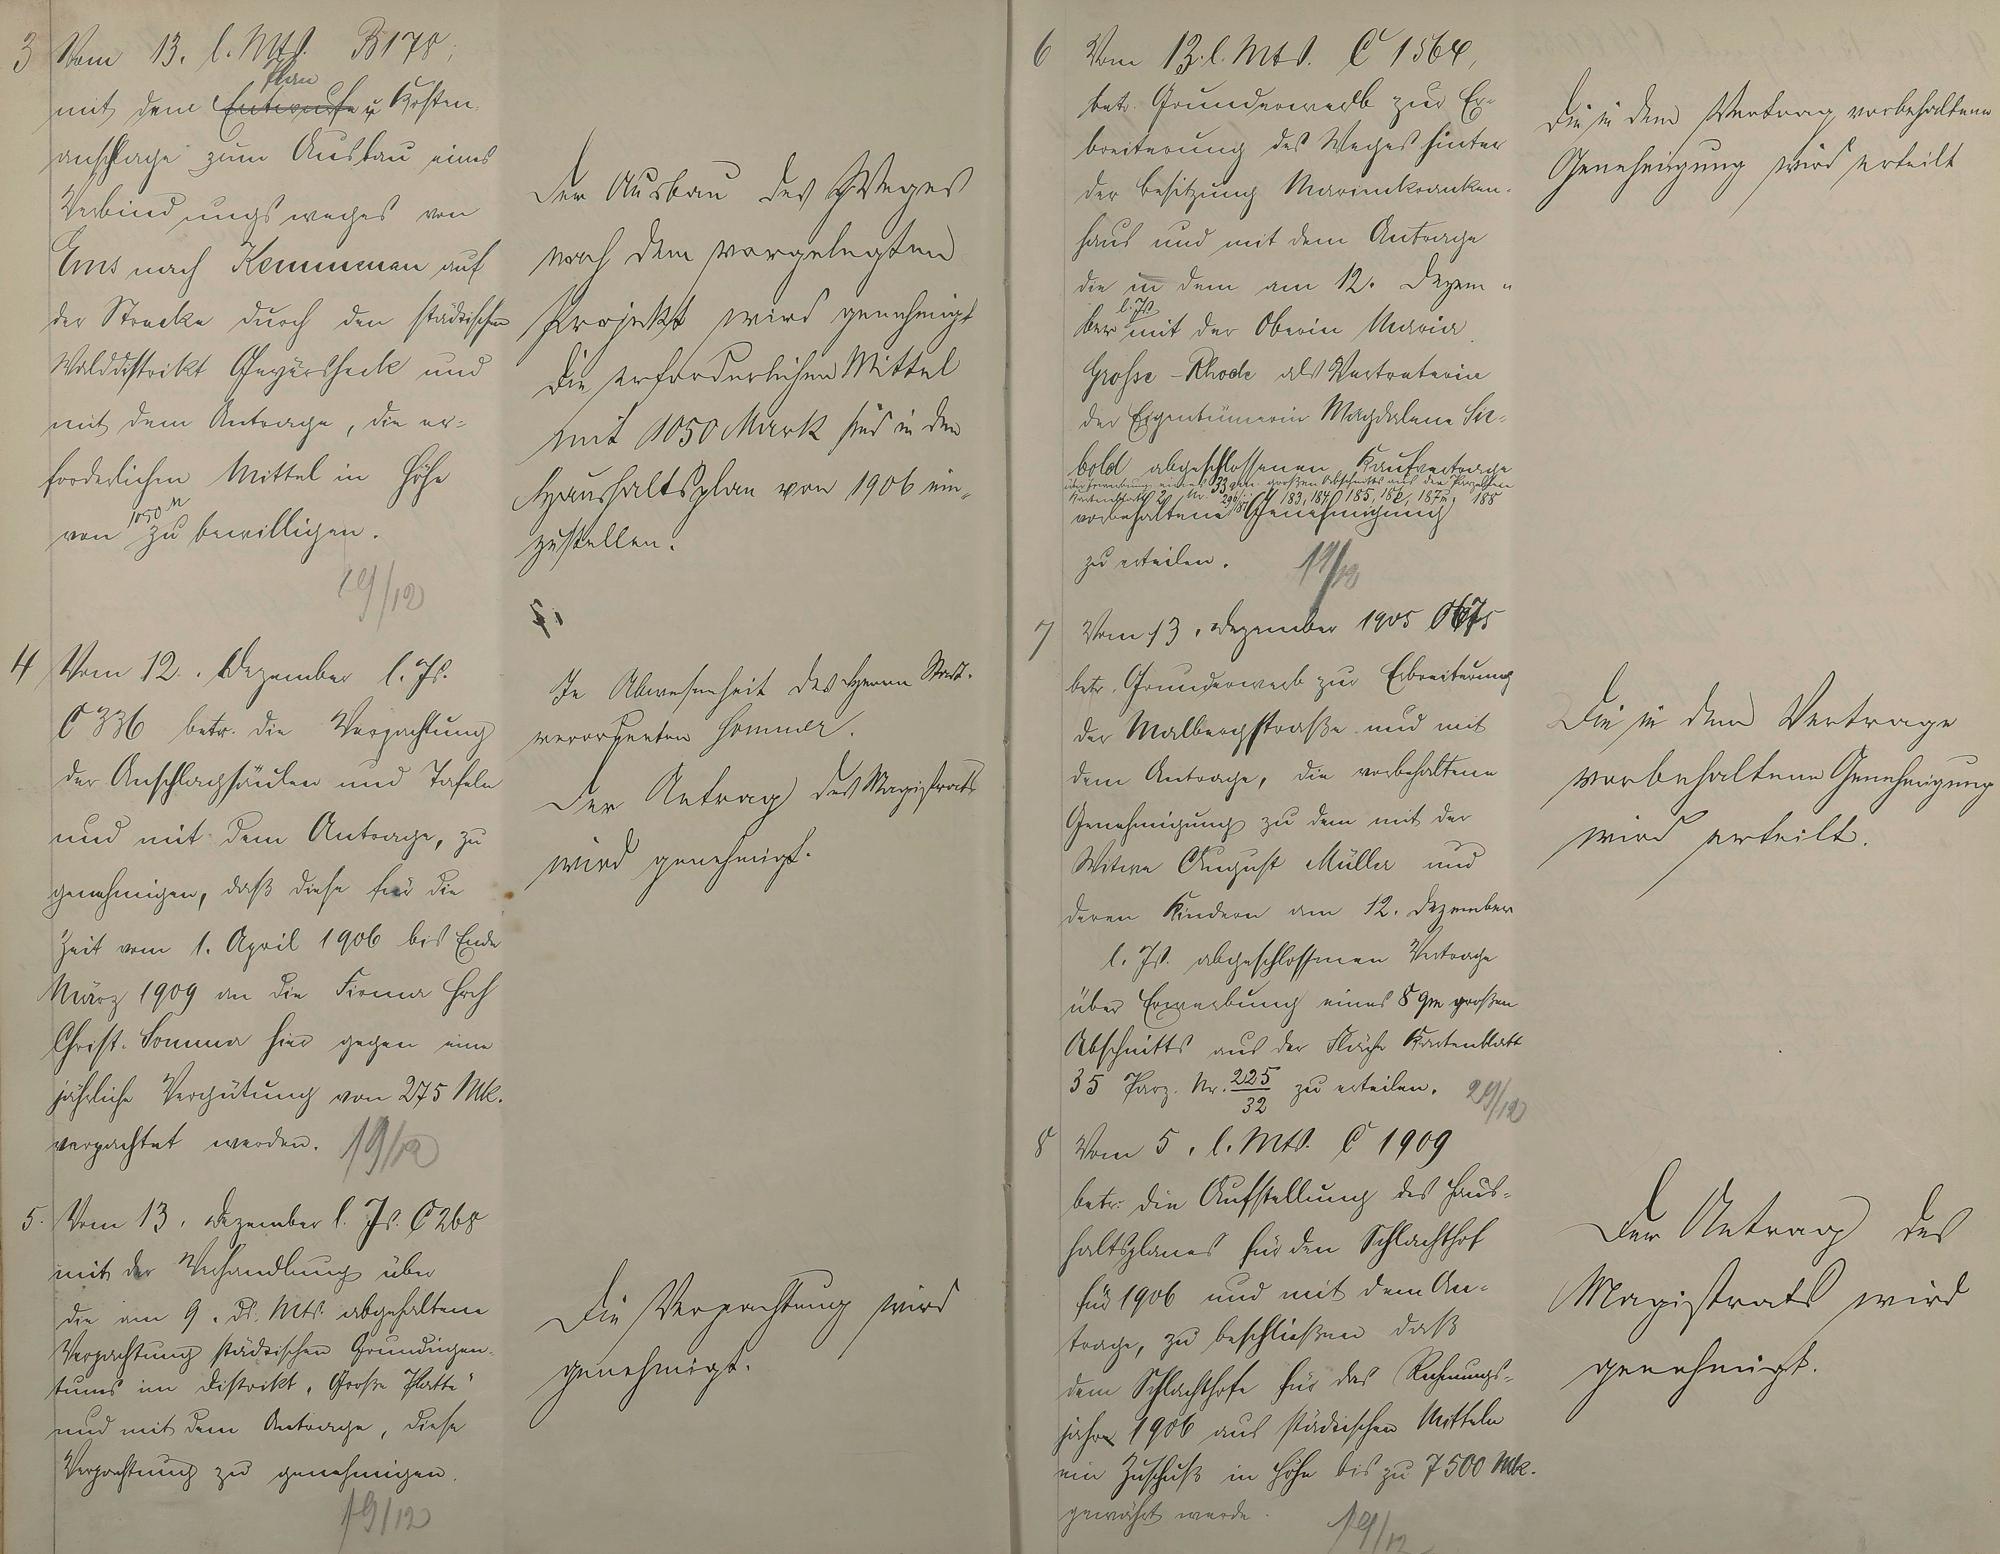 3 Vom 13. l. Mts. B 178,
Plan
mit dem Entwurfe u Kosten-
anschlage zum Ausbau eines
Verbindungsweges von
Ems nach Kemmenau auf
der Strecke durch den städtischen
Walddistrikt Geyersheck und
mit dem Antrage, die er-
forderlichen Mittel in Höhe
1050 M
von zu bewilligen.
19/12
Der Ausbau des Weges
nach dem vorgelegten
Projekt wird genehmigt
Die erforderlichen Mittel
mit 1050 Mark sind in den
Haushaltsplan von 1906 ein-
zustellen.
4 Vom 12. Dezember l. Js.
C 336 betr. die Verpachtung
der Anschlagsäulen und Tafeln
und mit dem Antrage, zu
genehmigen, daß diese für die
Zeit vom 1. April 1906 bis Ende
März 1909 an die Firma Hrch
Christ. Sommer hier gegen eine
jährliche Vergütung von 275 Mk.
verpachtet werden.
19/12
In Abwesenheit des Herrn Stadt-
verordneten Sommer.
Der Antrag des Magistrats
wird genehmigt.
5. Vom 13. Dezember l. Js. C 268
mit der Verhandlung über
die am 9. ds. Mts. abgehaltene
Verpachtung städtischen Grundeigen-
tums im Distrikt "Große Platte"
und mit dem Antrage, diese
Verpachtung zu genehmigen.
19/12
Die Verpachtung wird
genehmigt.
6 Vom 13. l. Mts. C 1564,
betr. Grunderwerb zur Er-
breiterung des Weges hinter
der Besitzung Marienkranken-
haus und mit dem Antrage
die in dem am 12. Dezem-
l. Js.
ber mit der Oberin Maria
Grosse-Rhode als Vertreterin
der Eigentümerin Magdalene Sie-
bold abgeschlossenen Kaufvertrage
über Erwerbung eines 33 qm großen Abschnitts aus den Parzellen
Kartenblatt 2 Nr. 183, 184, 185, 186, 187, 188
vorbehaltene Genehmigung
zu erteilen.
19/12
Die in dem Vertrag vorbehaltene
Genehmigung wird erteilt
7 Vom 13. Dezember 1905
betr. Grunderwerb zur Erbreiterung
der Malbergstraße und mit
dem Antrage, die vorbehaltene
Genehmigung zu dem mit der
Witwe August Müller und
deren Kindern am 12. Dezember
l. Js. abgeschlossenen Vertrage
über Erwerbung eines 8 qm großen
Abschnitts aus der Fläche Kartenblatt
35 Parz. Nr. 225/32 zu erteilen.
29/12
Die in dem Vertrage
vorbehaltene Genehmigung
wird erteilt.
8 Vom 5. l. Mts. C 1909
betr. die Aufstellung des Haus-
haltsplanes für den Schlachthof
für 1906 und mit dem An-
trage, zu beschließen daß
dem Schlachthofe für das Rechnungs-
jahr 1906 aus städtischen Mitteln
ein Zuschuß in Höhe bis zu 7500 Mk.
gewährt werde.
19/12
Der Antrag des
Magistrats wird
genehmigt.